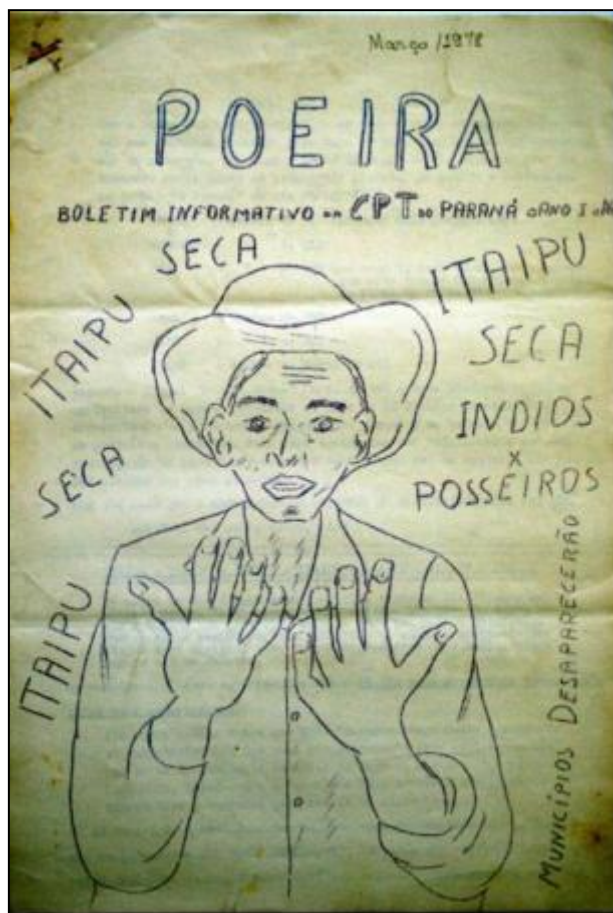 Março /1978
POEIRA
BOLETIM INFORMATIVO DA CPT DO PARANÁ ANO I
SECA
ITAIPU
ITAIPU
SECA
INDIOS
x
POSSEIROS
SECA
ITAIPU
MUNICÍPIOS DESAPARECERÃO